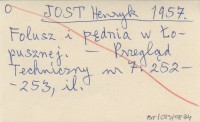 O JOST Henryk 1957.
Folusz i pędnia w Ło-
pusznej. — Przegląd
Techniczny nr 7: 252-
-253, il.